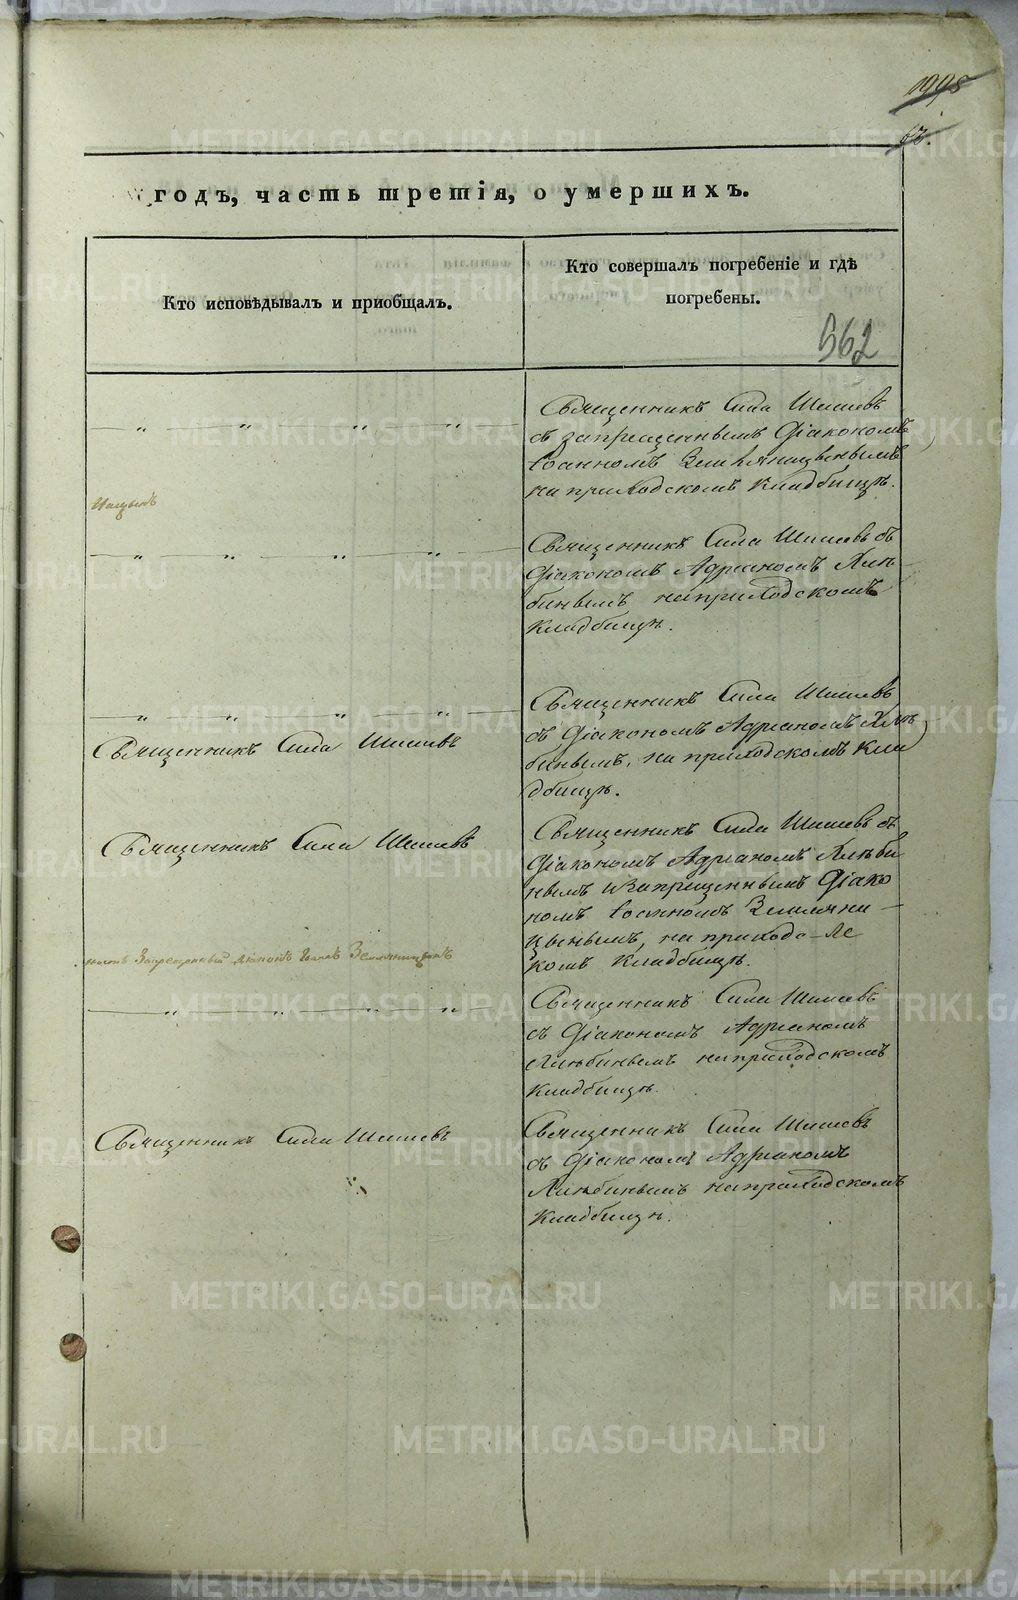 1998
годъ, часть третія, о умершихъ.
Кто исповѣдывалъ и пріобщалъ.
Кто совершалъ погребеніе и гдѣ
погребены.
562
Священникъ Сила Шишевъ
съ запрещеннымъ Діакономъ
Іоанномъ Земляницынымъ
на приходскомъ кладбищѣ.
Священникъ Сила Шишевъ съ
Діакономъ Адріаномъ Хлѣ
бинымъ на приходскомъ
кладбищѣ.
Священникъ Сила Шишевъ
съ Діакономъ Адріаномъ Хлѣ
бинымъ, на приходскомъ кла
дбищѣ.
Священникъ Сила Шишевъ
Священникъ Сила Шишевъ
Священникъ Сила Шишевъ съ
Діакономъ Адріаномъ Хлѣби
нымъ и запрещеннымъ Діако
номъ Іоанномъ Земляни
цынымъ, на приходс-
комъ кладбищѣ.
Діаконъ Земляницынъ
Священникъ Сила Шишевъ
съ Діакономъ Адріаномъ
Хлѣбинымъ на приходскомъ
кладбищѣ.
Священникъ Сила Шишевъ
Священникъ Сила Шишевъ
съ Діакономъ Адріаномъ
Хлѣбинымъ на приходскомъ
кладбищѣ.
METRIKI.GASO-URAL.RU